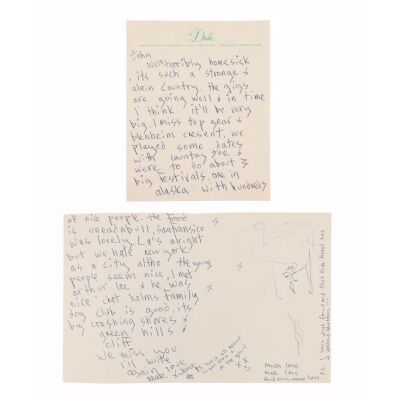 Duke
John
we're terribly homesick
its such a strange &
alein Country. the gigs
are going well & in time
I think it'll be very
big, I miss top gear &
blenheim cresent, we
played some dates
with country Joe &
were to do about 3
big festivals one in
alaska with hundreds
of nice people. the food
is uneadnbull, sanfransico
was lovely, La's alright
but we hate new york
as a city altho the young
people seem nice, I met
arthur lee & he was
nice chet helms family
dog club is good, its
by crashing shores &
green hills &
cliff
we miss you
I'll write
again love
much love
much love
and even more love